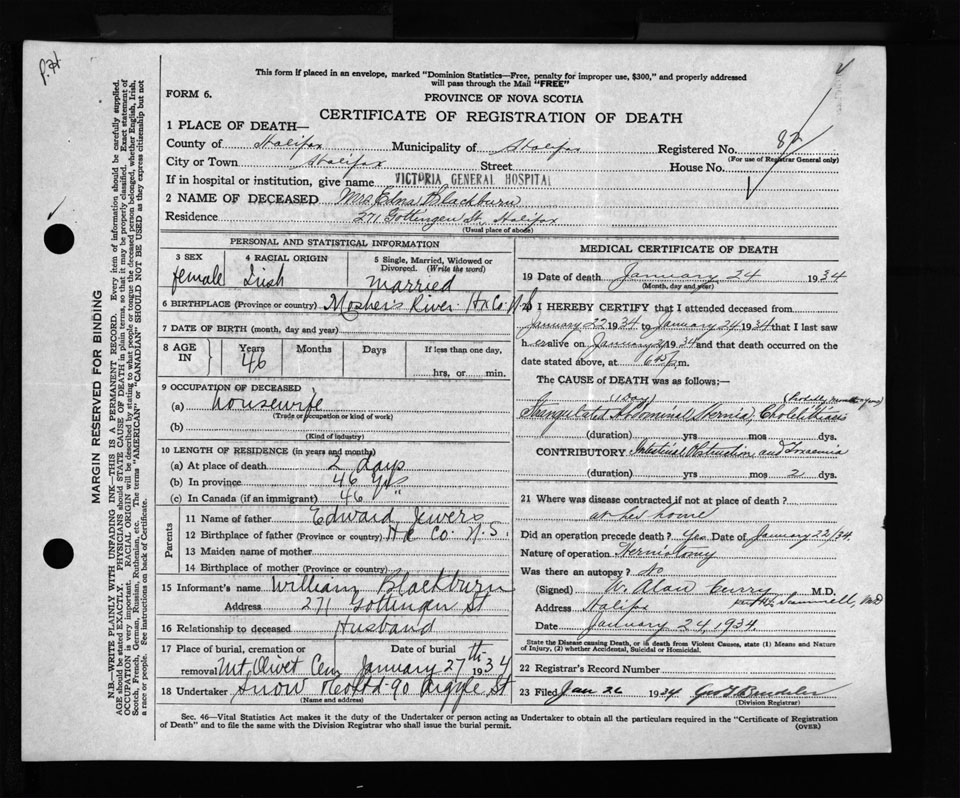 p. 21
This form if placed in an envelope, marked "Dominion Statistics—Free, penalty for improper use, $300," and properly addressed
will pass through the Mail "FREE"
FORM 6.
PROVINCE OF NOVA SCOTIA
CERTIFICATE OF REGISTRATION OF DEATH
1 PLACE OF DEATH—
County of Halifax Municipality of Halifax Registered No. 82
(For use of Registrar General only)
City or Town Halifax Street House No.
If in hospital or institution, give name VICTORIA GENERAL HOSPITAL
2 NAME OF DECEASED Mrs Edna Blackburn
Residence 271 Gottingen St, Halifax
(Usual place of abode)
MARGIN RESERVED FOR BINDING
N.B.—WRITE PLAINLY WITH UNFADING INK—THIS IS A PERMANENT RECORD. Every item of information should be carefully supplied.
AGE should be stated EXACTLY. PHYSICIANS should STATE CAUSE OF DEATH in plain terms, so that it may be properly classified. Exact statement of
OCCUPATION is very important. RACIAL ORIGIN will be described by stating to what people or tongue the deceased person belonged, whether English, Irish,
Scotch, French, German, Russian, Ruthenian, etc. The terms "AMERICAN" or "CANADIAN" SHOULD NOT BE USED as they express citizenship but not
a race or people. See instructions on back of Certificate.
PERSONAL AND STATISTICAL INFORMATION
3 SEX
female
4 RACIAL ORIGIN
Irish
5 Single, Married, Widowed or
Divorced. (Write the word)
Married
6 BIRTHPLACE (Province or country) Mosher's River Hx Co. N.S.
7 DATE OF BIRTH (month, day and year)
8 AGE IN
Years 46
Months
Days
If less than one day,
hrs. or min.
9 OCCUPATION OF DECEASED
(a) housewife
(Trade or occupation or kind of work)
(b)
(Kind of industry)
10 LENGTH OF RESIDENCE (in years and months)
(a) At place of death 2 days
(b) In province 46 yrs
(c) In Canada (if an immigrant) 46 "
Parents
11 Name of father Edward Jewers
12 Birthplace of father (Province or country) Hx Co. N.S.
13 Maiden name of mother
14 Birthplace of mother (Province or country)
15 Informant's name William Blackburn
Address 271 Gottingen St
16 Relationship to deceased Husband
17 Place of burial, cremation or Date of burial
removal Mt Olivet Cem January 27th 1934
18 Undertaker Snow 90 Argyle St
(Name and address)
MEDICAL CERTIFICATE OF DEATH
19 Date of death January 24 1934
(Month, day and year)
I HEREBY CERTIFY that I attended deceased from
January 22 1934 to January 24 1934 that I last saw
her alive on January 1934 and that death occurred on the
date stated above, at m.
The CAUSE OF DEATH was as follows:
(1 Day)
Strangulated Abdominal Hernia, Cholelithiasis
(duration) yrs mos dys.
CONTRIBUTORY. Intestinal Obstruction and Toxaemia
(duration) yrs mos 2 dys.
21 Where was disease contracted if not at place of death?
at her home
Did an operation precede death? Yes Date of January 22/34
Nature of operation Herniotomy
Was there an autopsy? No
(Signed) W. Alan Curry M.D.
Address Halifax
Date January 24, 1934.
State the Disease causing Death, or in death from Violent Causes, state (1) Means and Nature
of Injury, (2) whether Accidental, Suicidal or Homicidal.
22 Registrar's Record Number
23 Filed Jan 26 1934
(Division Registrar)
Sec. 46—Vital Statistics Act makes it the duty of the Undertaker or person acting as Undertaker to obtain all the particulars required in the "Certificate of Registration
of Death" and to file the same with the Division Registrar who shall issue the burial permit.
(OVER)